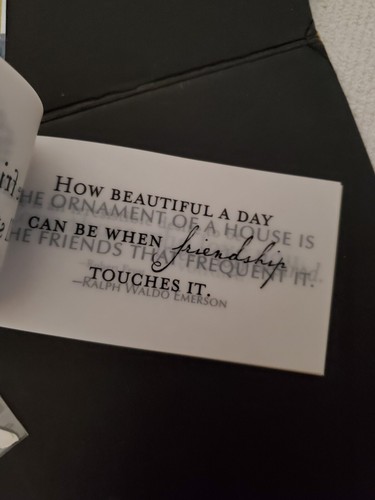 HOW BEAUTIFUL A DAY
HE ORNAMENT OF A HOUSE IS
CAN BE WHEN friendship
HE FRIENDS THAT FREQUENT IT.
TOUCHES IT.
—RALPH WALDO EMERSON